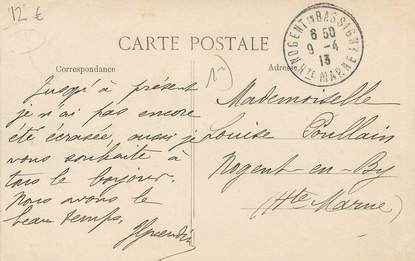 12 €
NOGENT EN BASSIGNY
6 50
9 -4
13
HTE MARNE
CARTE POSTALE
Correspondance
Adresse
Jusqu'à présent
je n'ai pas encore
été écrasée, aussi je
vous souhaite à
tous le bonjour.
Nous avons le
beau temps,
Mademoiselle
Louise Poullain
Nogent-en-By
(Hte Marne)